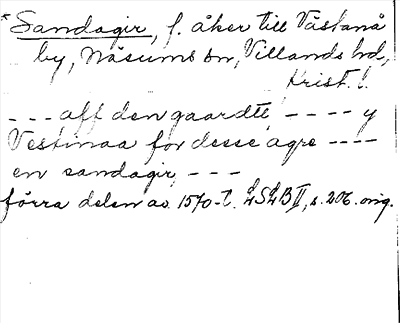 *Sandagir, f. åker till Västanå
by, Näsums sn, Villands hd,
Krist. l.
--- aff den gaardte ---- y
Vestinaa for desse agre ----
en sandagir, ---
förra delen av 1570-t. LSLB II, s. 206. orig.